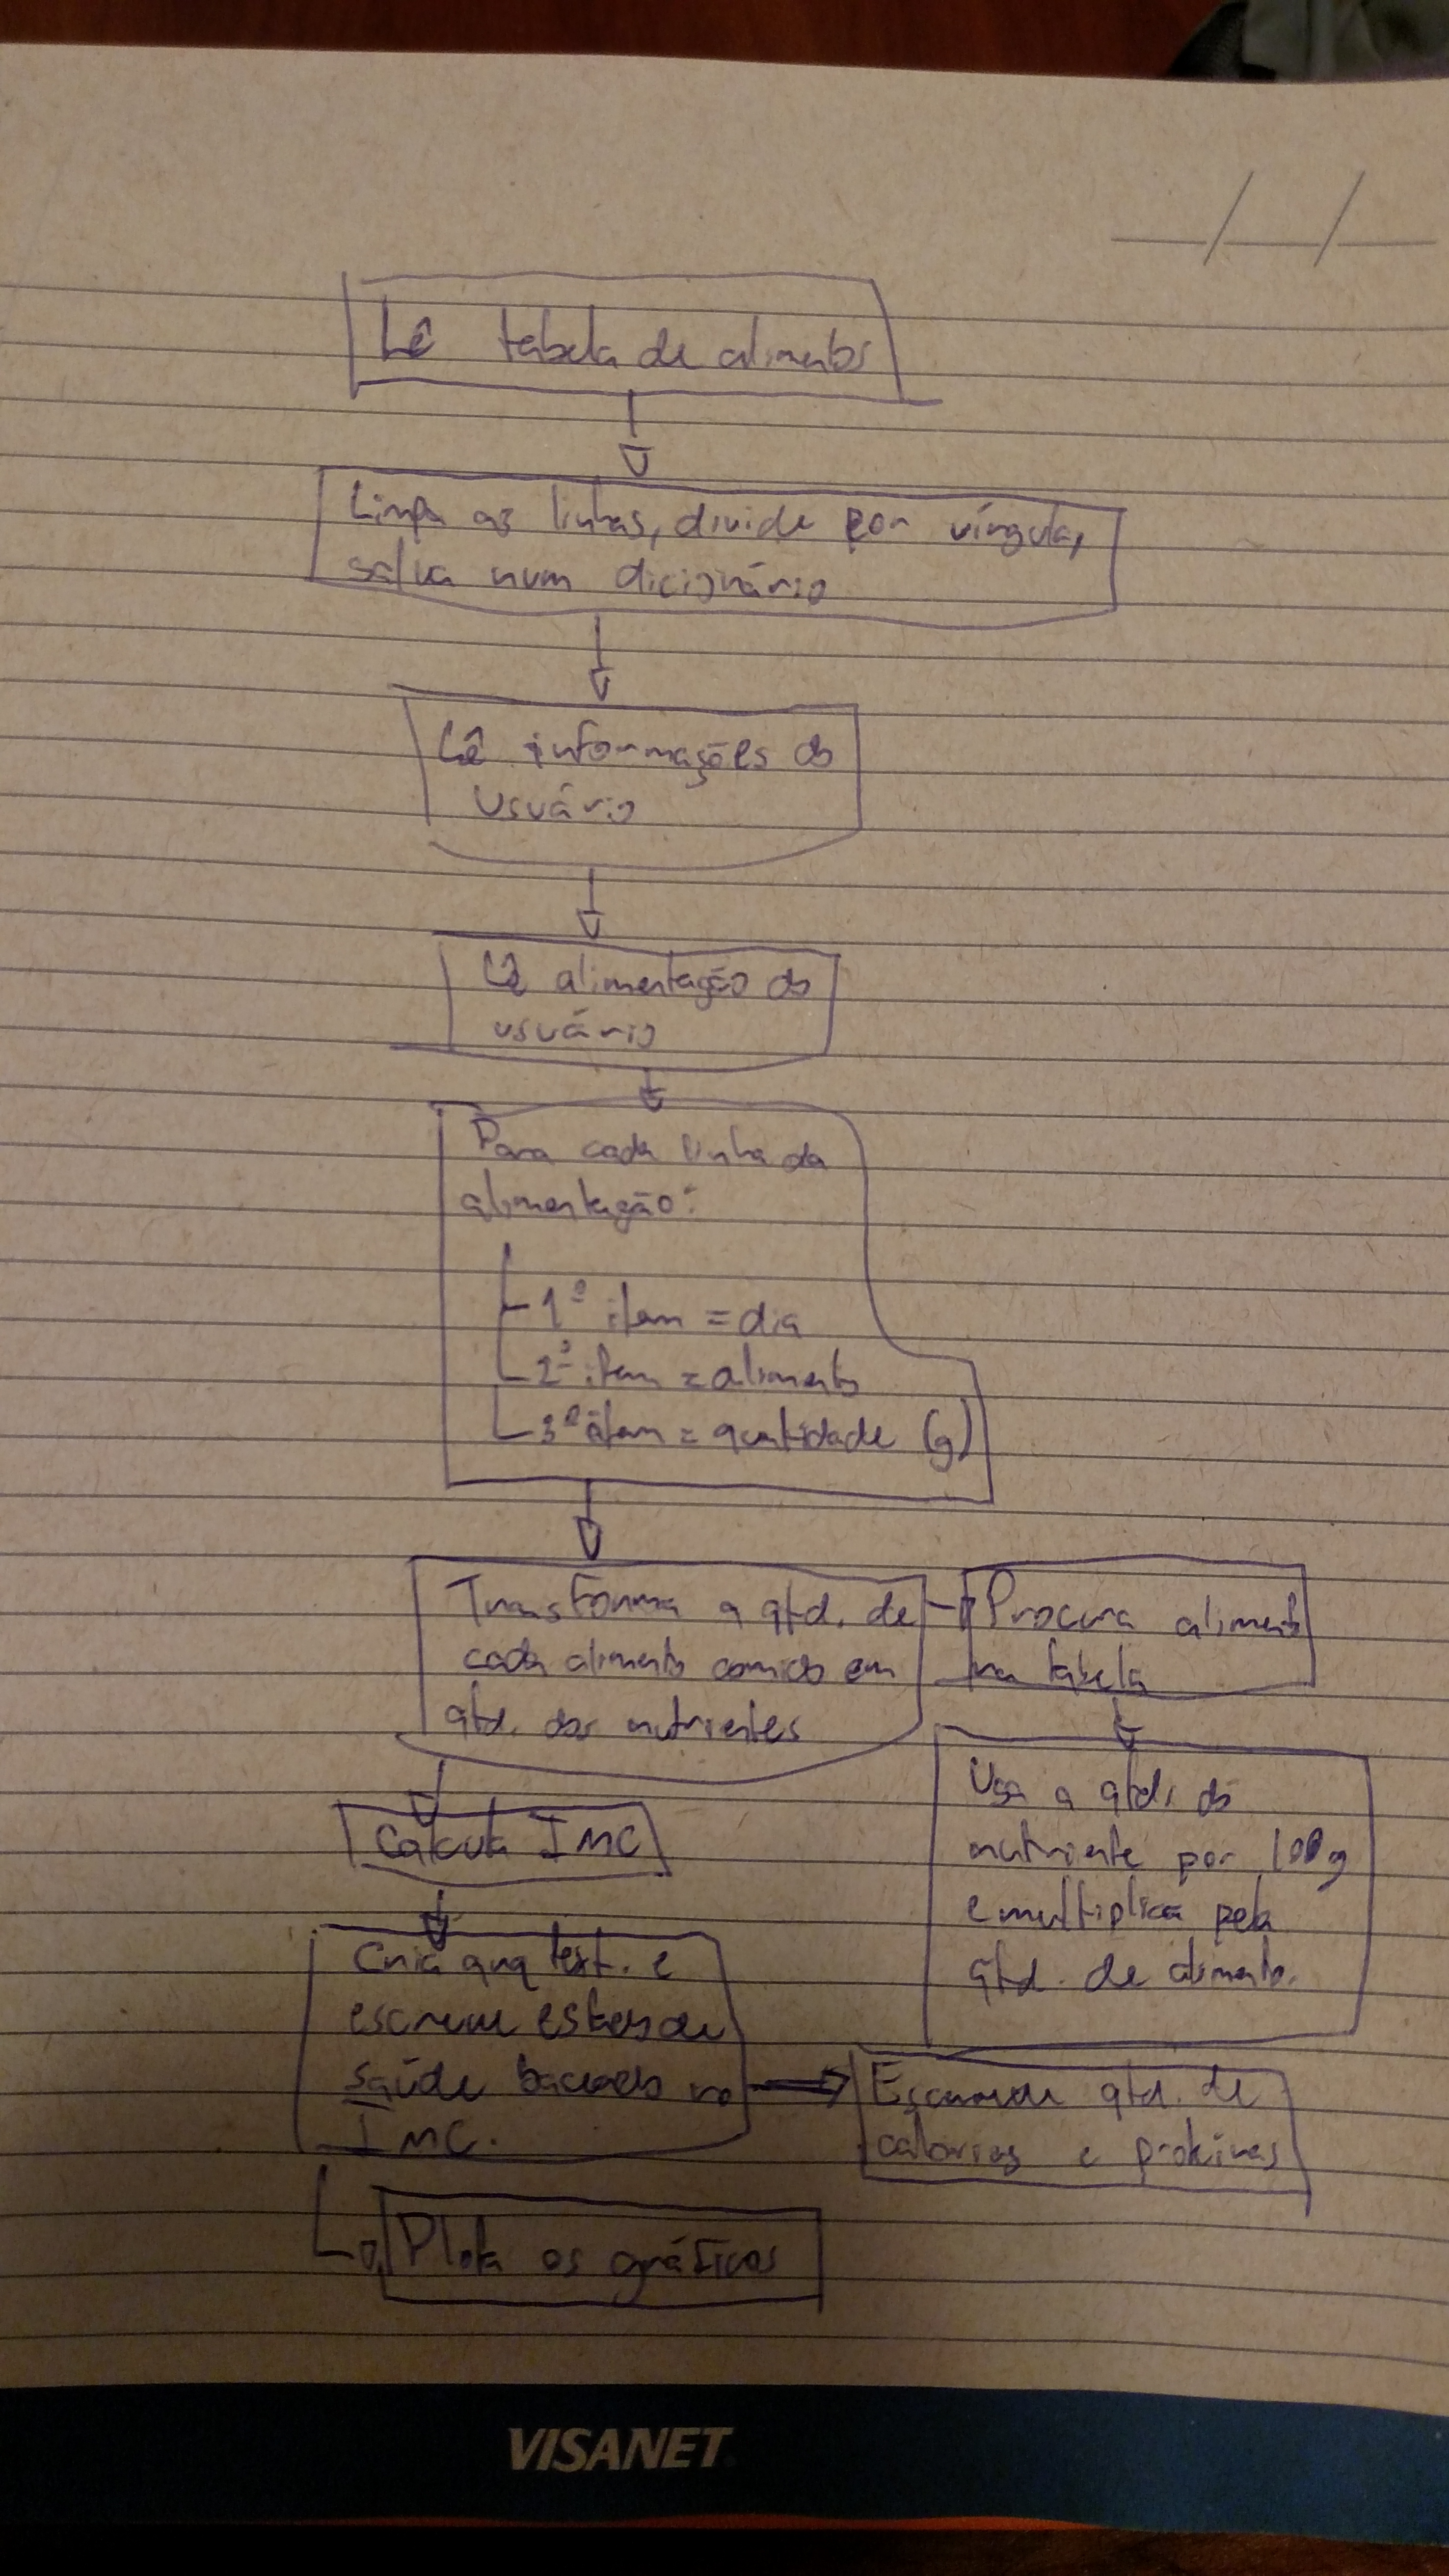 Lê tabela de alimentos
Limpa as linhas, divide por vírgula,
salva num dicionário
Lê informações do
usuário
Lê alimentação do
usuário
Para cada linha da
alimentação:
1º item = dia
2º item = alimento
3º item = quantidade (g)
Transforma a qtd. de
cada alimento comido em
qtd. dos nutrientes
Procura alimento
na tabela
Usa a qtd. do
nutriente por 100g
e multiplica pela
qtd. de alimento.
Calcula IMC
Cria arq text. e
escreve estado de
saúde baseado no
IMC.
Escreve qtd. de
calorias e proteínas
Plota os gráficos
VISANET